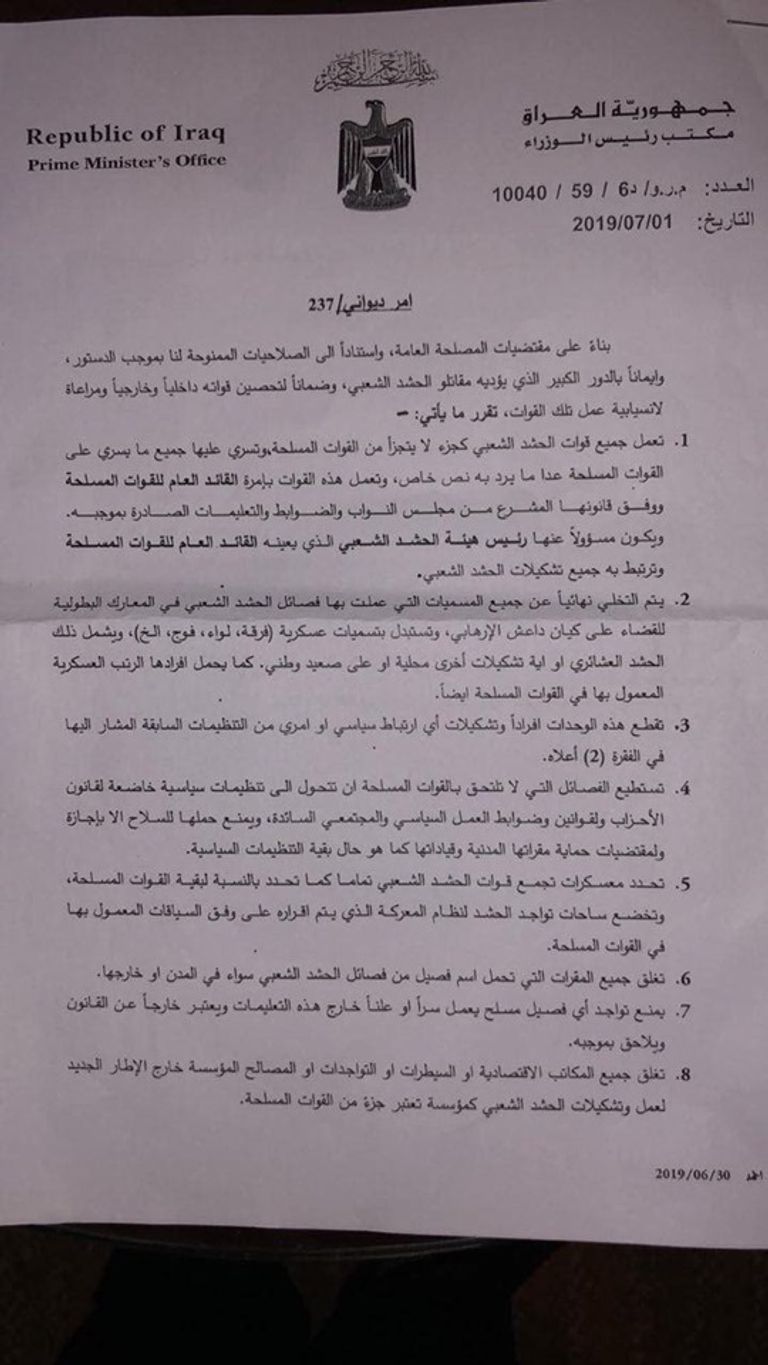 بسم الله الرحمن الرحيم
Republic of Iraq
Prime Minister's Office
جمهوريّة العراق
مكتب رئيس الوزراء
العدد: م.ر.و/ د6 / 59 / 10040
التاريخ: 2019/07/01
امر ديواني/237
بناءً على مقتضيات المصلحة العامة، واستناداً الى الصلاحيات الممنوحة لنا بموجب الدستور،
وايماناً بالدور الكبير الذي يؤديه مقاتلو الحشد الشعبي، وضماناً لتحصين قواته داخلياً وخارجياً ومراعاة
لانسيابية عمل تلك القوات، تقرر ما يأتي: –
1. تعمل جميع قوات الحشد الشعبي كجزء لا يتجزأ من القوات المسلحة،وتسري عليها جميع ما يسري على
القوات المسلحة عدا ما يرد به نص خاص، وتعمل هذه القوات بإمرة القائد العام للقوات المسلحة
ووفق قانونها المشرع من مجلس النواب والضوابط والتعليمات الصادرة بموجبه.
ويكون مسؤولاً عنها رئيس هيئة الحشد الشعبي الذي يعينه القائد العام للقوات المسلحة
وترتبط به جميع تشكيلات الحشد الشعبي.
2. يتم التخلي نهائياً عن جميع المسميات التي عملت بها فصائل الحشد الشعبي في المعارك البطولية
للقضاء على كيان داعش الإرهابي، وتستبدل بتسميات عسكرية (فرقة، لواء، فوج، الخ)، ويشمل ذلك
الحشد العشائري او اية تشكيلات أخرى محلية او على صعيد وطني. كما يحمل افرادها الرتب العسكرية
المعمول بها في القوات المسلحة ايضاً.
3. تقطع هذه الوحدات افراداً وتشكيلات أي ارتباط سياسي او امري من التنظيمات السابقة المشار اليها
في الفقرة (2) أعلاه.
4. تستطيع الفصائل التي لا تلتحق بالقوات المسلحة ان تتحول الى تنظيمات سياسية خاضعة لقانون
الأحزاب ولقوانين وضوابط العمل السياسي والمجتمعي السائدة، ويمنع حملها للسلاح الا بإجازة
ولمقتضيات حماية مقراتها المدنية وقياداتها كما هو حال بقية التنظيمات السياسية.
5. تحدد معسكرات تجمع قوات الحشد الشعبي تماما كما تحدد بالنسبة لبقية القوات المسلحة،
وتخضع ساحات تواجد الحشد لنظام المعركة الذي يتم اقراره على وفق السياقات المعمول بها
في القوات المسلحة.
6. تغلق جميع المقرات التي تحمل اسم فصيل من فصائل الحشد الشعبي سواء في المدن او خارجها.
7. يمنع تواجد أي فصيل مسلح يعمل سراً او علناً خارج هذه التعليمات ويعتبر خارجاً عن القانون
ويلاحق بموجبه.
8. تغلق جميع المكاتب الاقتصادية او السيطرات او التواجدات او المصالح المؤسسة خارج الإطار الجديد
لعمل وتشكيلات الحشد الشعبي كمؤسسة تعتبر جزة من القوات المسلحة.
2019/06/30